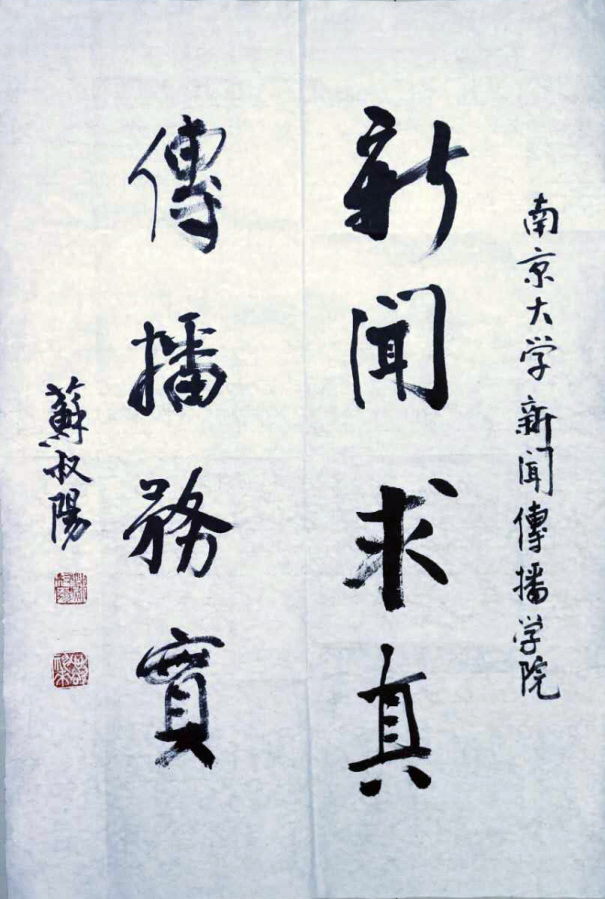 南京大学新闻傳播学院
新闻求真
傳播務實
蘇叔陽